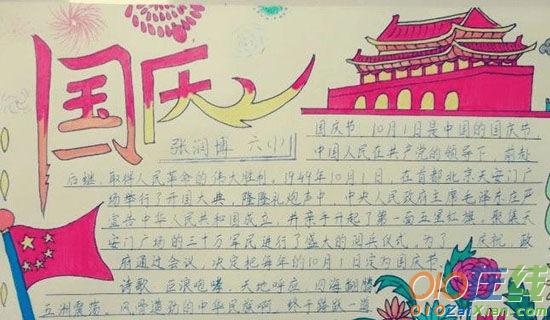 国庆
张润博 六(1)
国庆节 10月1日是中国的国庆节,
中国人民在共产党的领导下,前赴
后继,取得人民革命的伟大胜利,1949年10月1日,在首都北京天安门广
场举行了开国大典,隆隆礼炮声中,中央人民政府主席毛泽东庄严
宣告中华人民共和国成立,并亲手升起了第一面五星红旗。聚集天
安门广场的三十万军民进行了盛大的阅兵仪式,为了 庆祝,政
府通过会议 决定把每年的10月1日定为国庆节。
诗歌 巨浪咆哮,天地呼应 四海翻腾
五洲震荡,风雷激动的中华民族啊 终于踏
在线
ZaiXian.com